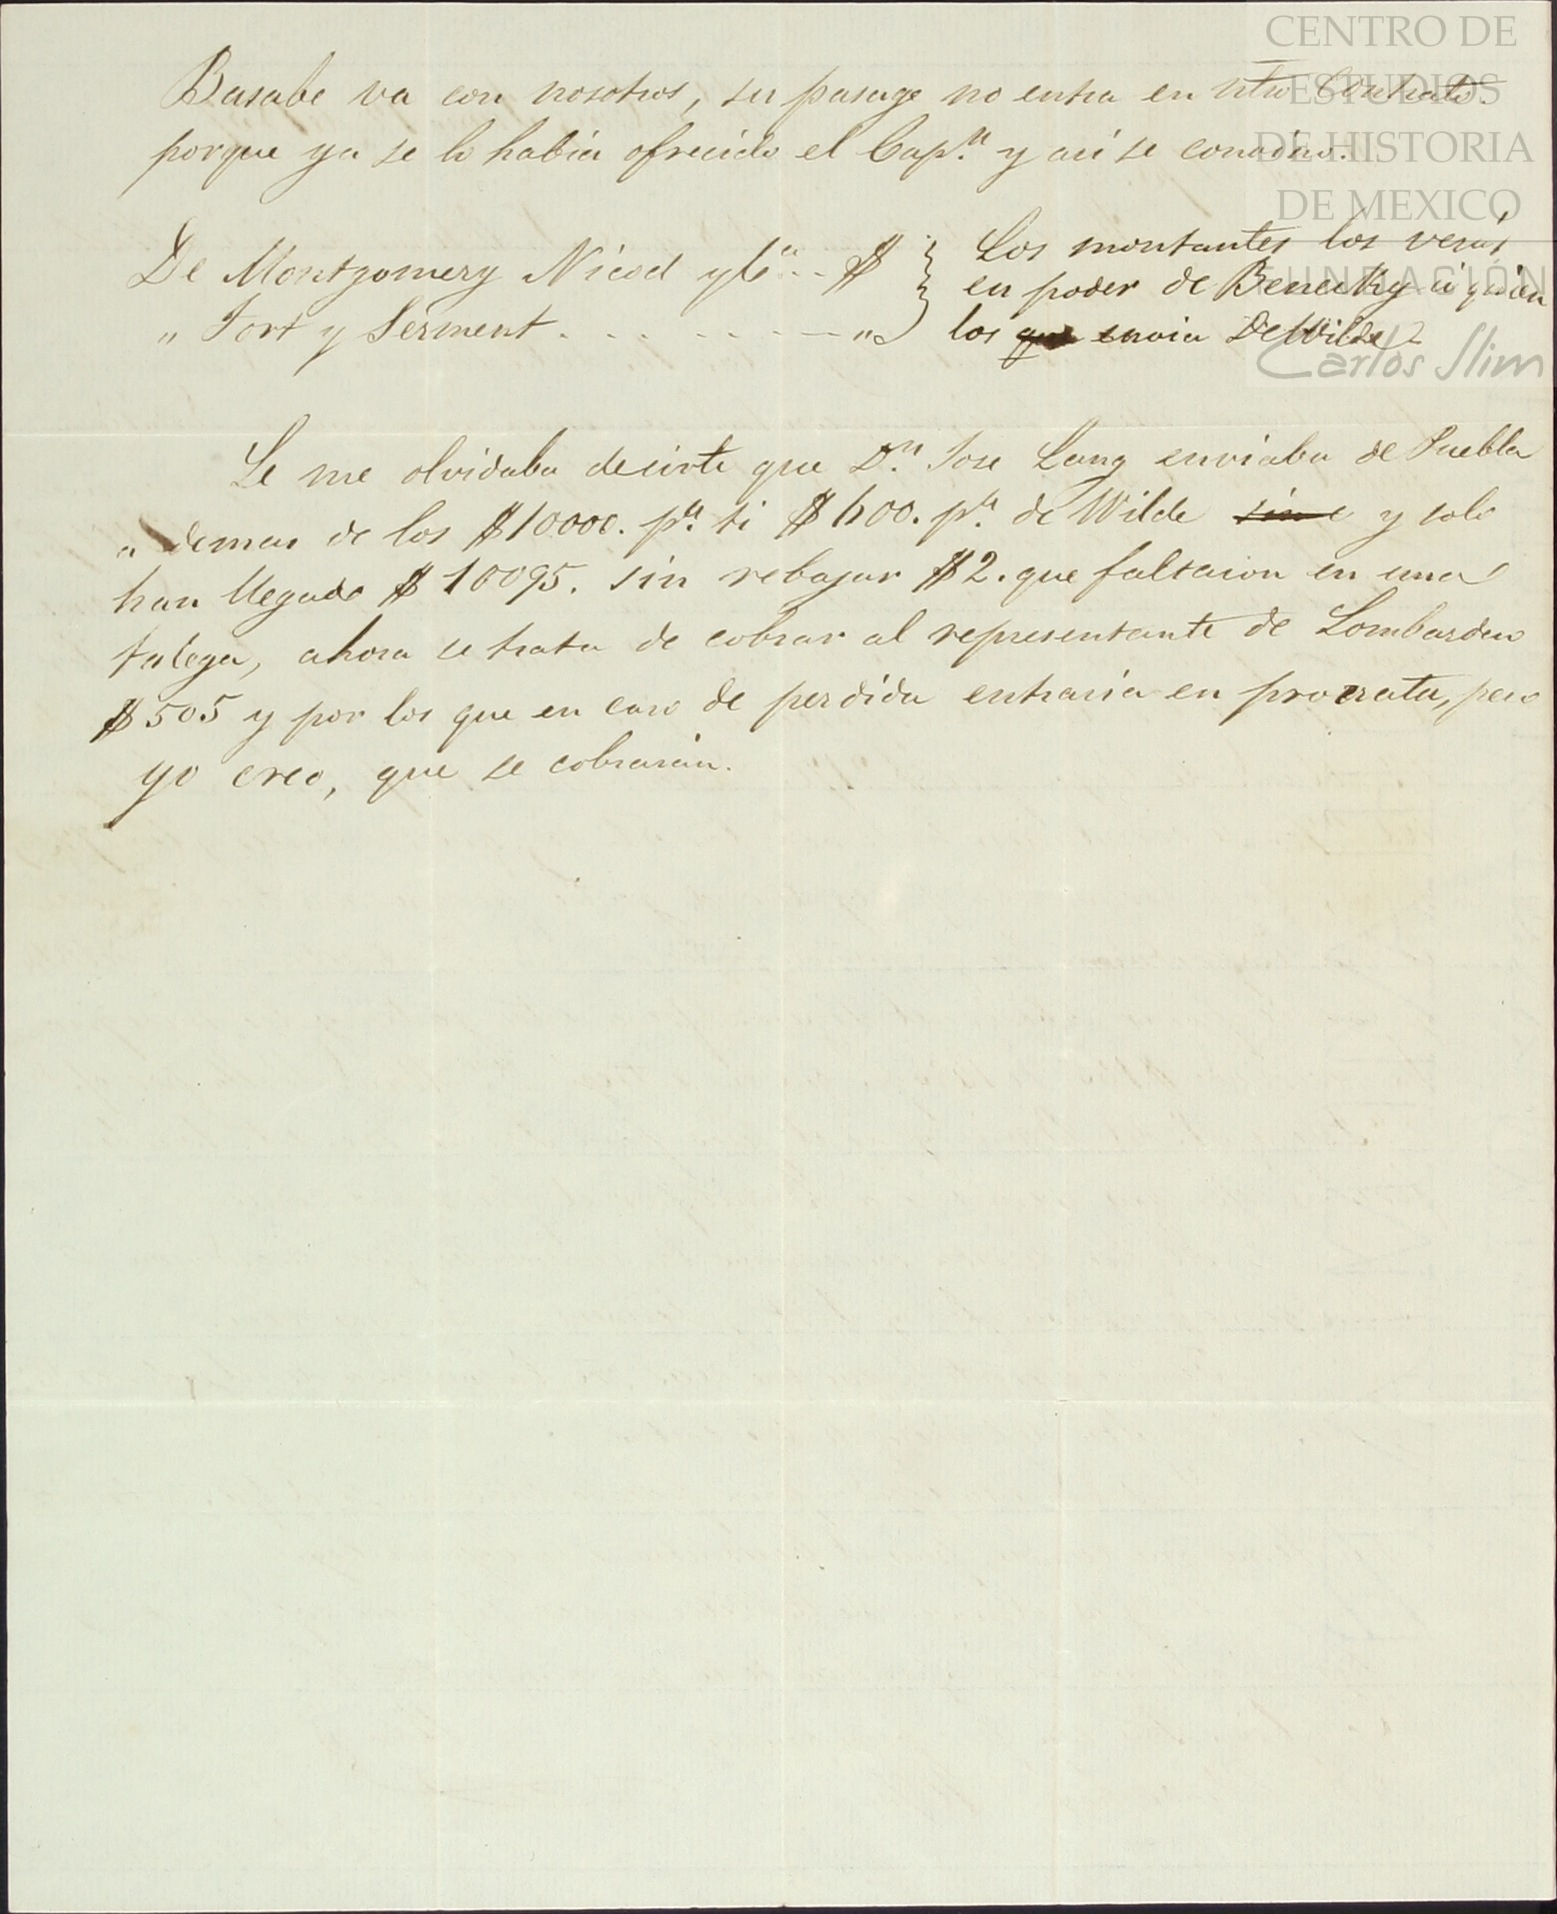 CENTRO DE
ESTUDIOS
DE HISTORIA
DE MEXICO
FUNDACIÓN
Carlos Slim
Basabe va con nosotros, su pasage no entra en ntro Contrato.
porque ya se lo habia ofrecido el Cap.n y asi se convino.
De Montgomery Nicod y Ca .. $ } Los montantes los verás
" Fort y Serment . . . . . . . . " } en poder de Benecke á quien
los que envia De Wilde
Se me olvidaba decirte que D.n Jose Lang enviaba de Puebla
ademas de los $10000. pa. ti $600. pa. de Wilde sin e y solo
han llegado $10095. sin rebajar $2. que faltaron en una
talega, ahora se trata de cobrar al representante de Lombardero
$505 y por los que en caso de perdida entraria en prorrata, pero
yo creo, que se cobrarán.